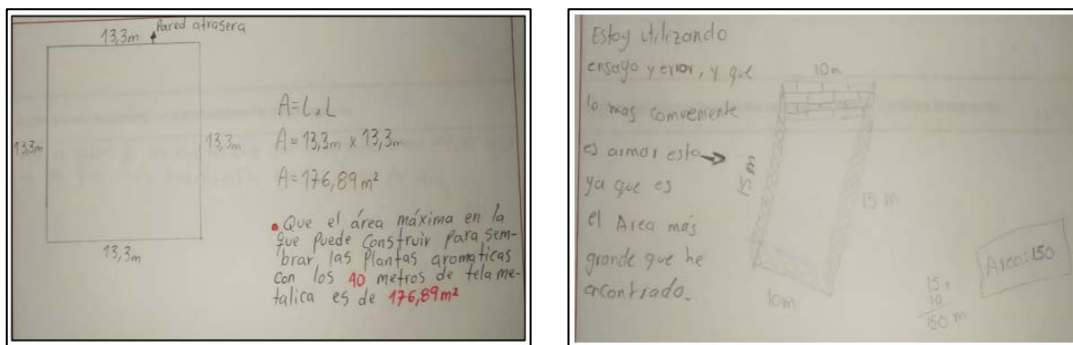 Pared atrasera
13,3m
13,3m
13,3m
13,3m
A=L×L
A=13,3m x 13,3m
A=176,89m²
• Que el área máxima en la
que puede construir para sem-
brar las plantas aromaticas
con los 40 metros de tela me-
talica es de 176,89m²
Estoy utilizando
ensayo y error, y que
lo mas comveniente
es armar esta →
ya que es
el Area más
grande que he
encontrado.
10m
15 m
15 m
10m
15 x
10
150 m
Area: 150